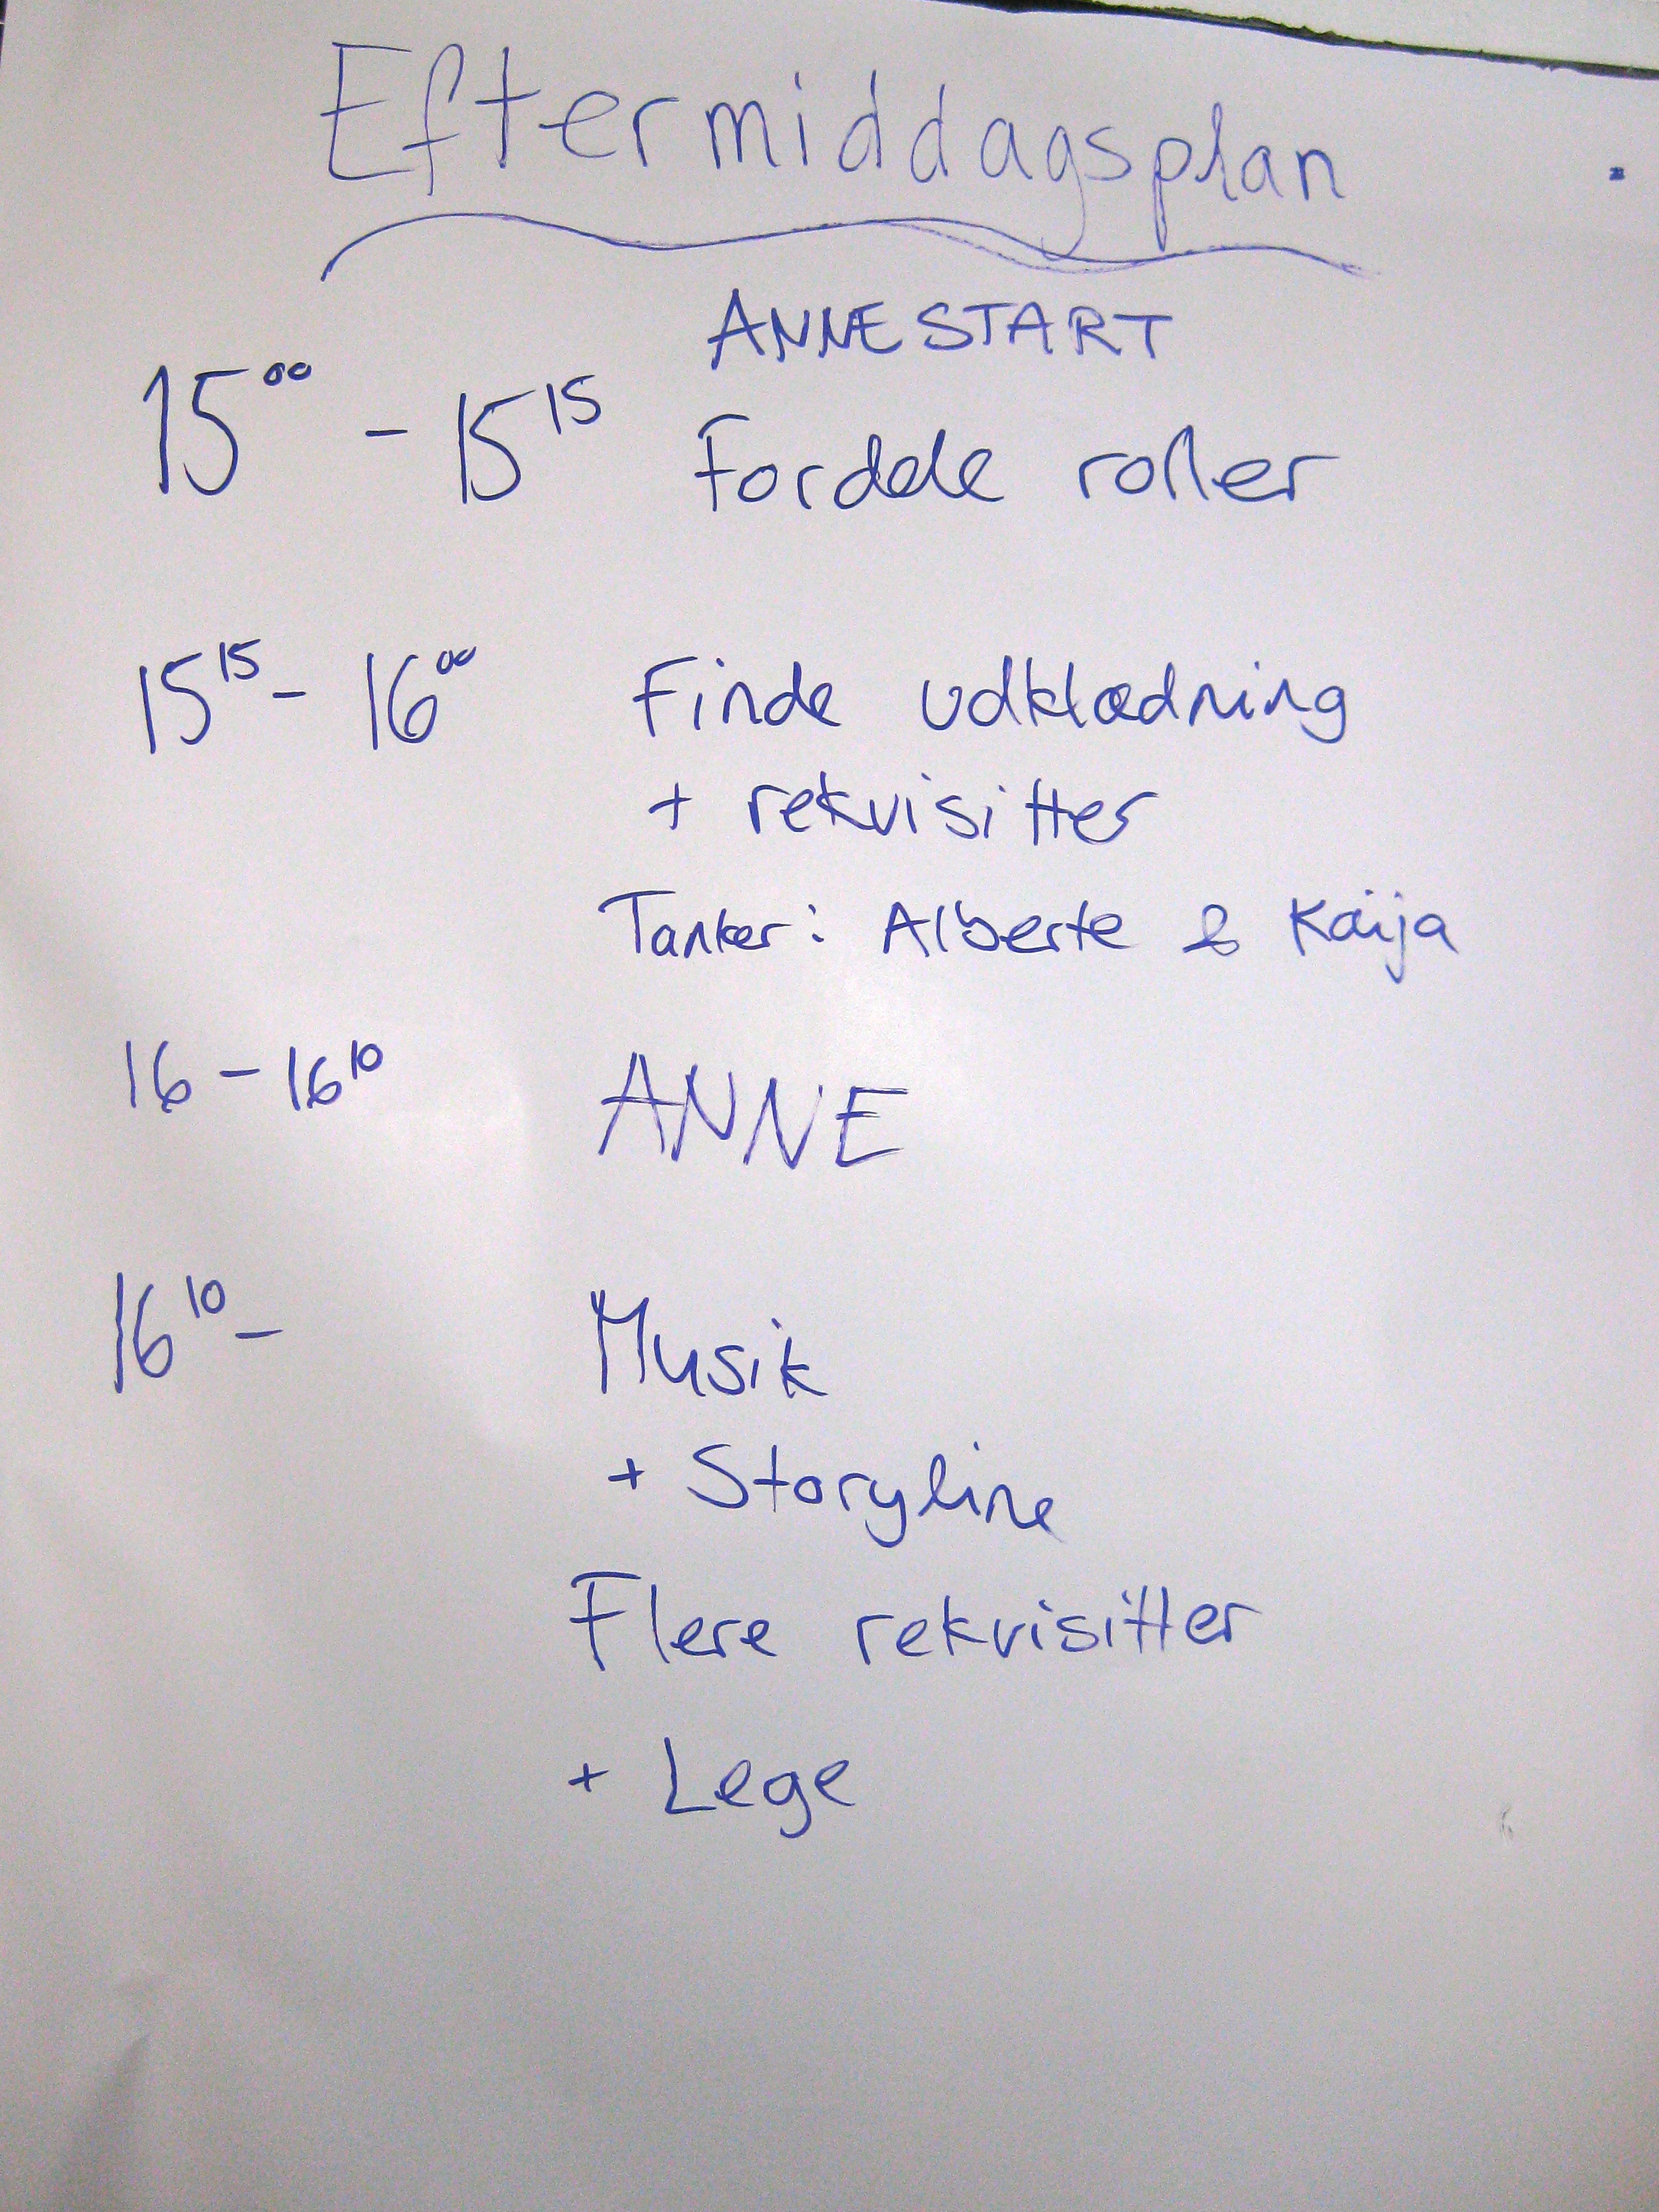 Eftermiddagsplan
ANNE START
15⁰⁰ - 15¹⁵ Fordele roller
15¹⁵ - 16⁰⁰ Finde udklædning
+ rekvisitter
Tanker: Alberte & Kaija
16 - 16¹⁰ ANNE
16¹⁰ - Musik
+ Storyline
Flere rekvisitter
+ Lege